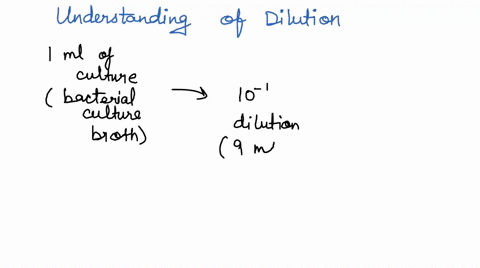 Understanding of Dilution
1 ml of
culture
( bacterial
culture
broth)
→ 10⁻¹
dilution
( 9 m